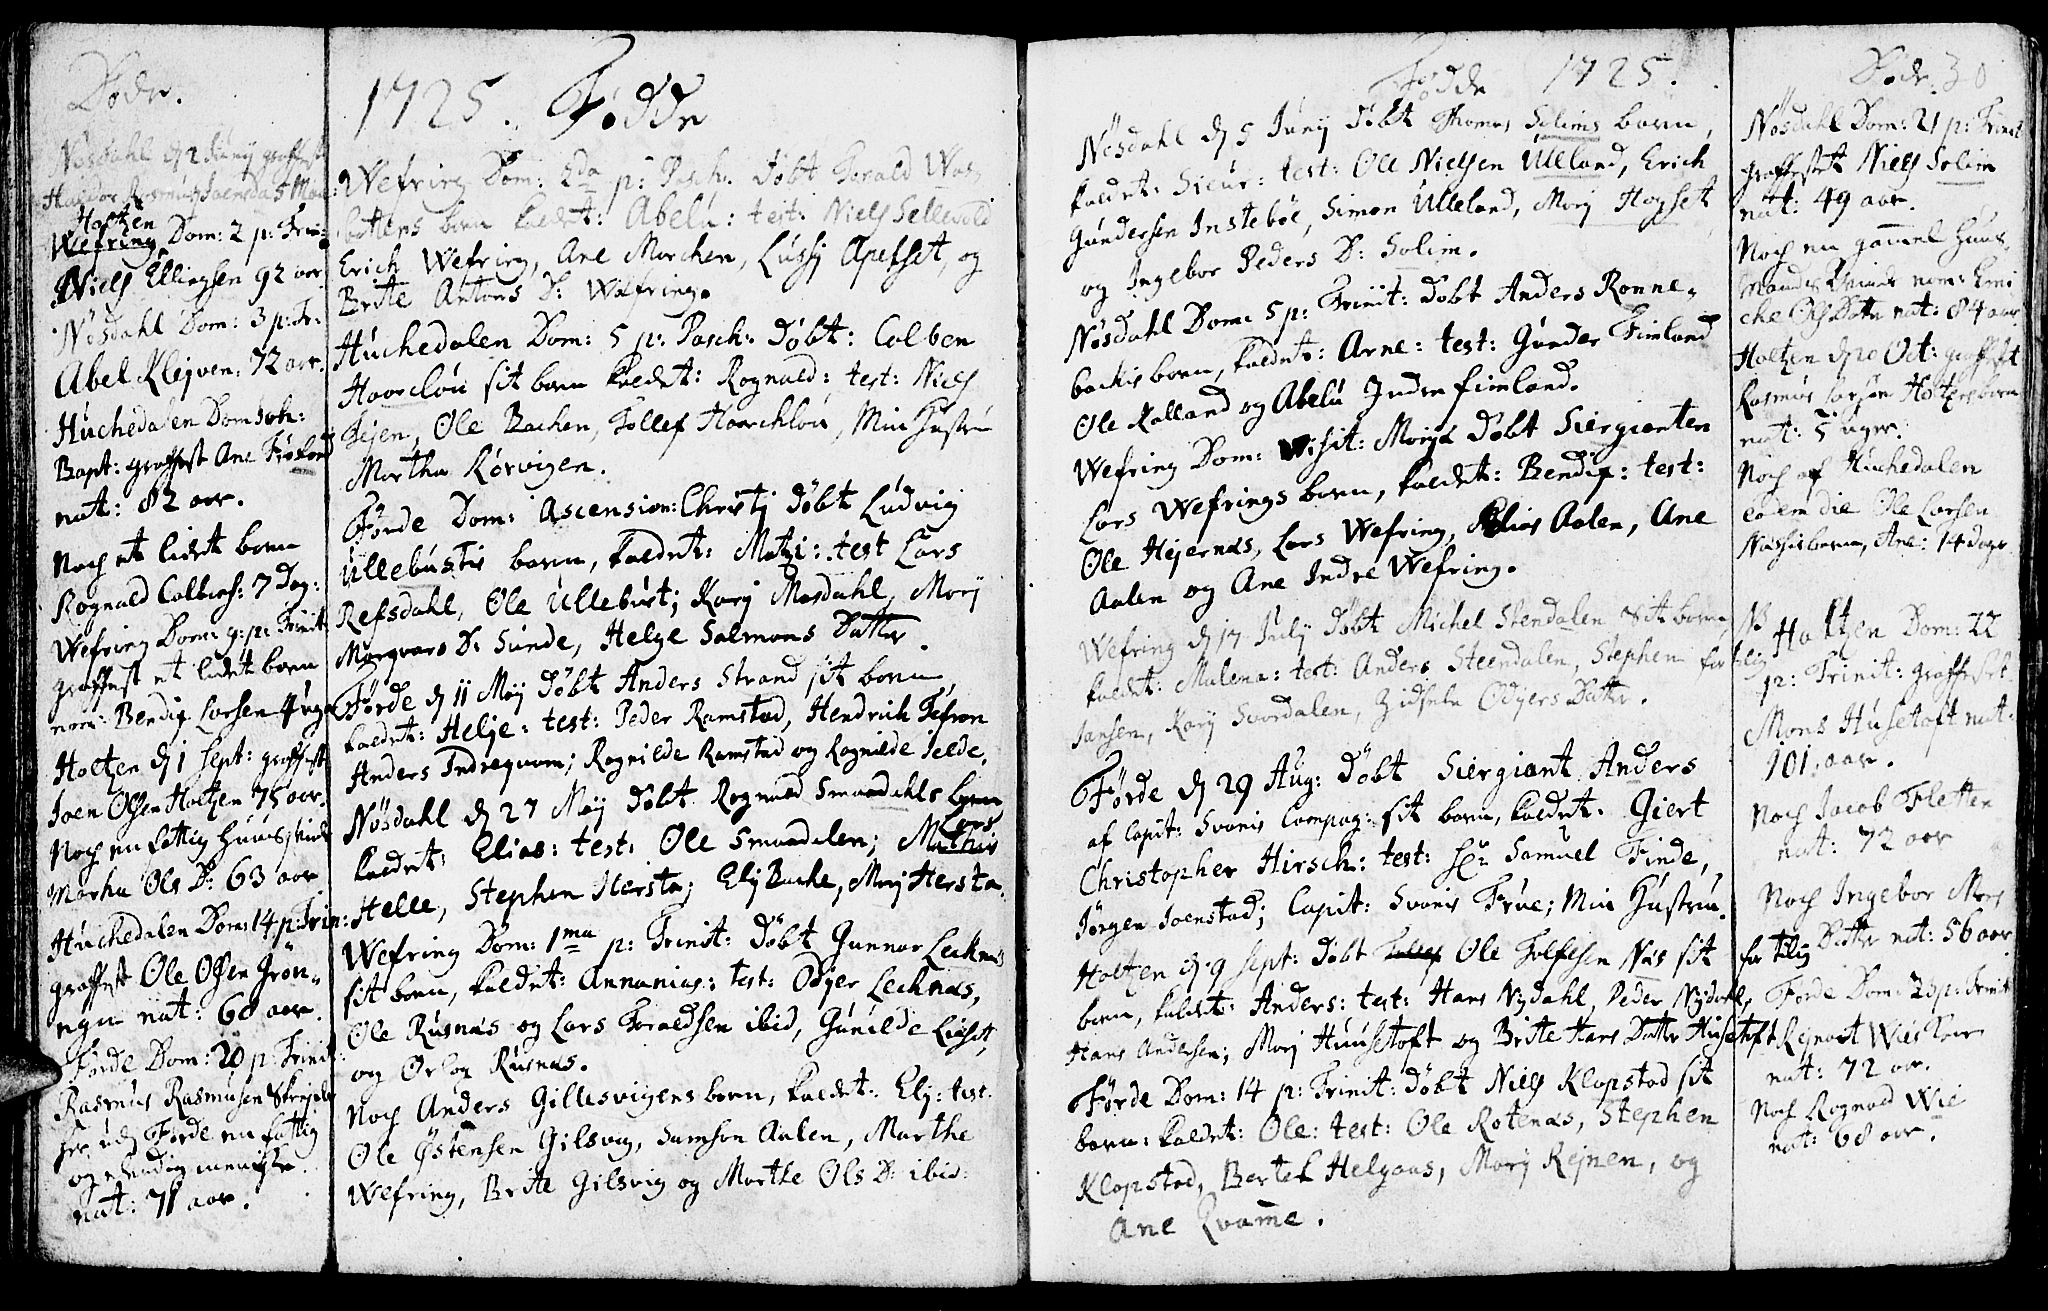 Døde.
Nøsdahl d 2 Junij graffest
Holtzen
Wefring Dom: 2 p: Trin:
Niels Ellingsen 92 aar
Nøsdahl Dom: 3 p: Tr:
Abel Klejven: 72 aar.
Huchedalen Dom Joh:
Bapt: graffest Ane Frøland
nat: 82 aar.
Noch et lidet barn
Rognald Colbens: 7 Dag:
Wefring Dom: 9: p: Trinit
graffest et lidet barn
nom: Bendix Larsen 4 uger
Holtzen d 1 Sept: graffest
Joen Olsen Holtzen 75 aar.
Noch en fattig huuskinde
Marha Ols D: 63 aar
Huchedalen Dom: 14 p: Trin:
graffest Ole Olsen Grøn-
ngen nat: 60 aar.
Førde Dom: 20 p: Trinit:
Rasmus Rasmusen
her udj Førde en fattig
og elendig menniske.
nat: 71 aar.
1725. Fødde
Wefring Dom: 2da p: Pasch: Døbt Torald Was
battens barn kaldet: Abelu: test: Niels Sellevold
Erich Wefring, Ane Marchen, Lussj Apelset, og
Brite Antons D: Wefring.
Huchedalen Dom: 5 p: Pasch: Døbt: Colben
Haarclou sit barn kaldet: Rognald: test: Niels
Tejen, Ole Bachen, Tollef Haarchlou, Min Hustru
Martha Kørvigen.
Førde Dom: Ascension: Christj Døbt Ludvig
Ullebustis barn, kaldet: Matzi: test Lars
Refsdahl, Ole Ulleburt; Karj Masdahl, Marj
Mongvars D: Sunde, Helge Salmons Datter.
Førde d 11 Maj Døbt Anders Strand sit barn,
kaldet: Helje: test: Peder Ramstad, Hendrich Tefron
Anders Indrequam; Rognilde Ramstad og Rognilde Jelde.
Nøsdahl d 27 Maj Døbt Rognald Smaadahls barn
Lars
kaldet: Elias: test: Ole Smaadalen; Mathis
Helle, Stephen Hersta; Elj Bache, Marj Hersta.
Wefring Dom: 1ma p: Trinit: Døbt Gunnar Lecknæs
sit barn, kaldet: Annanias: test: Odjer Lecknæs,
Ole Rusnæs og Lars Toraldsen ibid, Gunilde Liset,
og Orlog Rusnæs.
Noch Anders Gillesvigens barn, kaldet: Elj: test.
Ole Østensen Gilsvig, Samson Aalen, Marthe
Wefring, Brite Gilsvig og Marthe Ols D: ibid.
Fødde 1725.
Nøsdahl d 5 Junij Døbt Thomas Solims barn,
kaldet: Sieur: test: Ole Nielsen Ulleland, Erich
Gundersen Instebøe, Simon Ulleland, Marj Hogset
og Ingebor Peders D: Solim.
Nøsdahl Dom: 5 p: Trinit: Døbt Anders Ronne-
backis barn, kaldet: Arne: test: Gunder Fimland
Ole Kalland og Abelu Indre fimland.
Wefring Dom: Visit: Mariæ Døbt Siergianten
Lars Wefrings barn, kaldet: Bendix: test:
Ole Hejernæs, Lars Wefring, Elias Aalen, Ane
Aalen og Ane Indre Wefring.
Wefring d 17 Julij Døbt Michel Stendalen sit barn,
kaldet: Malena: test: Anders Steendalen, Stephen for tilig
Jansen, Karj Svordalen, Zidsele Odjers Datter.
Førde d 29 Aug: Døbt Siergiant Anders
af Capit: Svanis Compag: sit barn, kaldet. Giert
Christopher Hirsch: test: Samuel Finde,
Jørgen Joenstad; Capit: Svanis Frue; Min Hustru.
Holtzen d. 9 Sept: Døbt Tollef Ole Tolfesen Næs sit
barn, kaldet: Anders: test: Hans Nydahl, Peder Nydahl,
Hans Andersen; Marj Huusetoft og Brite Hans Datter Husetoft
Førde Dom: 14 p: Trinit: Døbt Niels Klopstad sit
barn: kaldet: Ole: test: Ole Rotenæs, Stephen
Klopstad, Bertel Helgaas, Marj Rejnen, og
Ane Qvamme.
Døde. 30
Nøsdahl Dom: 21 p: Trinit
graffestet Niels Solim
nat: 49 aar.
Noch en gammel huus-
mands Qvinde nom: Emi
che Ols Datter nat: 84 aar.
Holtzen d 20 Oct: graffest
Rasmus Holtzens barn
nat: 5 uger.
Noch af Huchedalen
eodem die Ole Larsen
barn, Ane: 14 dage
NB Holtzen Dom: 22
p: Trinit: graffestet
Mons Husetoft nat:
101. aar.
Noch Jacob Fletten
nat: 72 aar
Noch Ingebor Mons
for tilig Datter nat: 56 aar.
Førde Dom: 23 p: Trinit
Rejnolt
nat: 72 aar.
Noch Rognald Wie
nat: 68 aar.